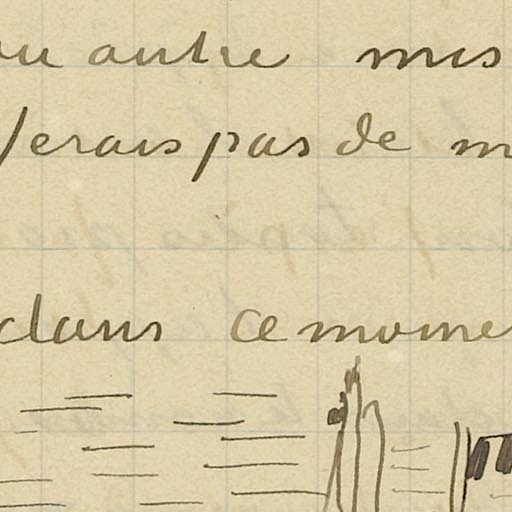 ou autre mis
ferais pas de m
dans ce mome